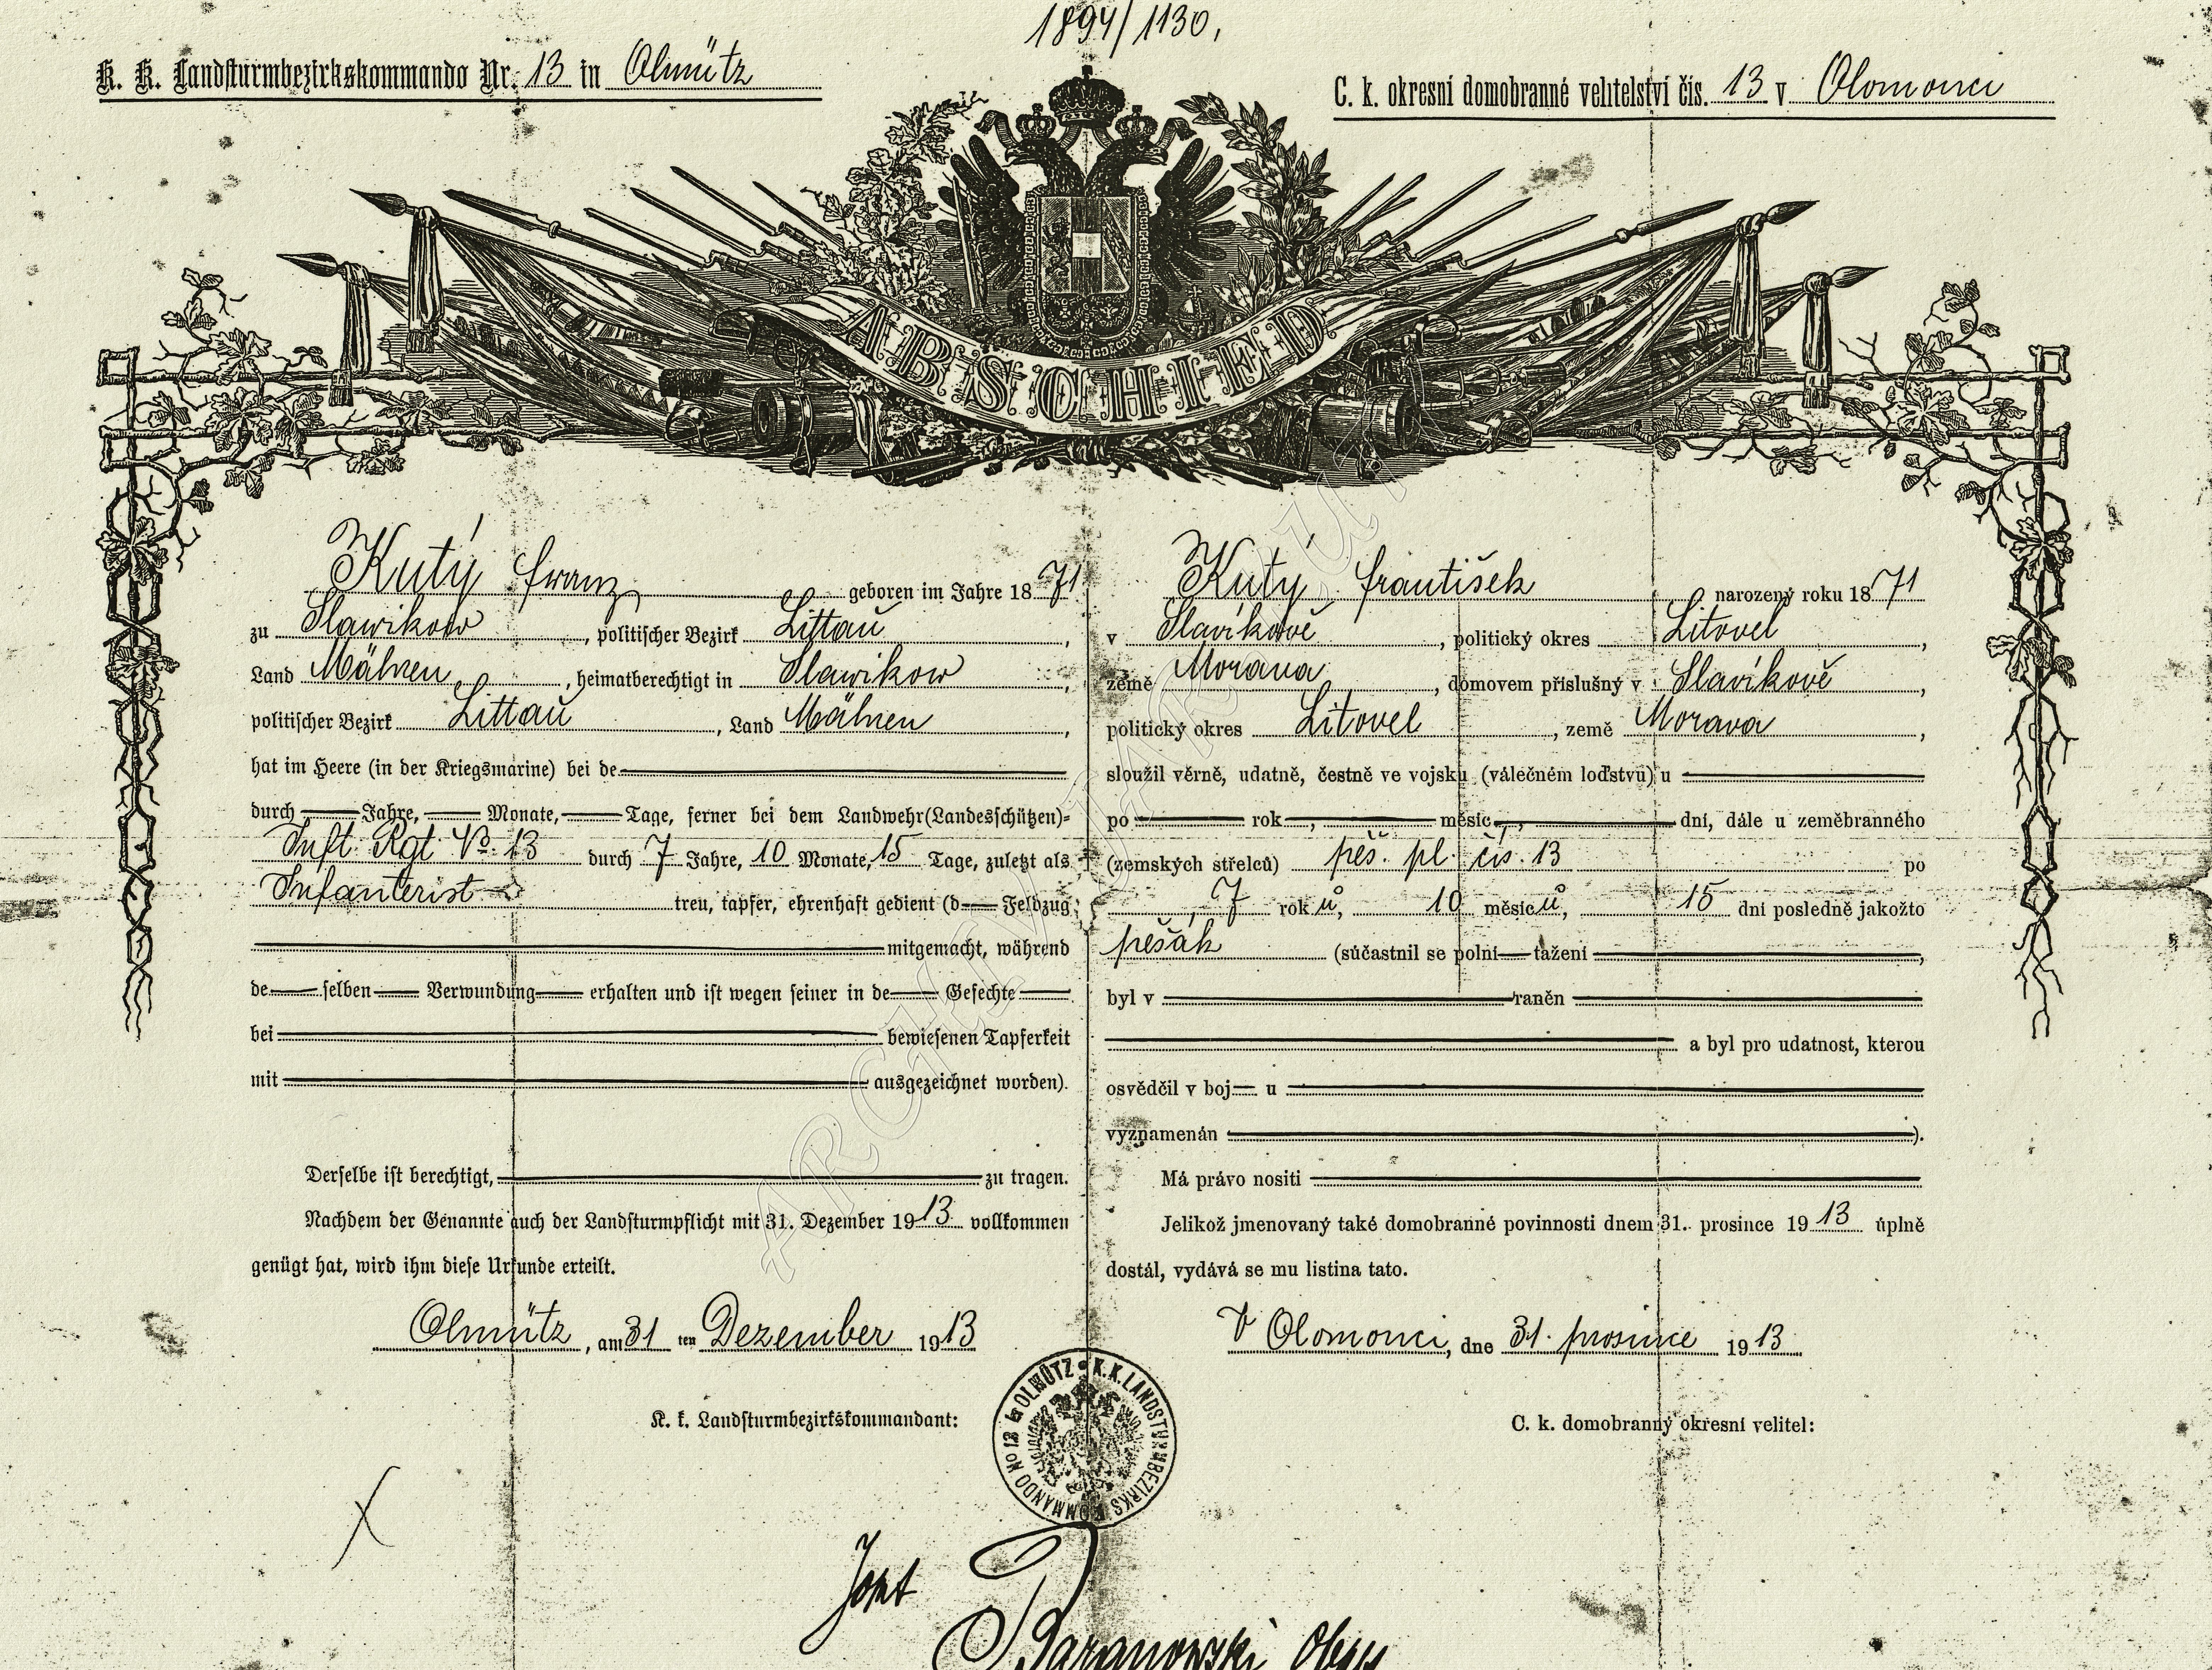 1894/1130,
K. K. Landsturmbezirkskommando Nr. 13 in Olmütz
C. k. okresní domobranné velitelství čís. 13 v Olomouci
ABSCHIED
Kutý Franz geboren im Jahre 1871
zu Slawikow, politischer Bezirk Littau,
Land Mähren, heimatberechtigt in Slawikow,
politischer Bezirk Littau, Land Mähren,
hat im Heere (in der Kriegsmarine) bei de
durch Jahre, Monate, Tage, ferner bei dem Landwehr(Landesschützen)=
Inft. Rgt. No. 13 durch 7 Jahre, 10 Monate, 15 Tage, zuletzt als
Infanterist treu, tapfer, ehrenhaft gedient (d Feldzug
mitgemacht, während
de selben Verwundung erhalten und ist wegen seiner in de Gefechte
bei bewiesenen Tapferkeit
mit ausgezeichnet worden).
Derselbe ist berechtigt, zu tragen.
Nachdem der Genannte auch der Landsturmpflicht mit 31. Dezember 1913 vollkommen
genügt hat, wird ihm diese Urkunde erteilt.
Olmütz, am 31 ten Dezember 1913
K. k. Landsturmbezirkskommandant:
Kutý František narozený roku 1871
v Slavíkově, politický okres Litovel,
země Morava, domovem příslušný v Slavíkově,
politický okres Litovel, země Morava,
sloužil věrně, udatně, čestně ve vojsku (válečném loďstvu) u
po rok, měsíc, dní, dále u zeměbranného
(zemských střelců) pěš. pl. čís. 13 po
7 roků, 10 měsíců, 15 dní posledně jakožto
pěšák (súčastnil se polní tažení,
byl v raněn
a byl pro udatnost, kterou
osvědčil v boj u
vyznamenán ).
Má právo nositi
Jelikož jmenovaný také domobranné povinnosti dnem 31. prosince 1913 úplně
dostál, vydává se mu listina tato.
V Olomouci, dne 31. prosince 1913
C. k. domobranný okresní velitel:
K.K. LANDSTURMBEZIRKS KOMMANDO No 13 OLMÜTZ
Baranowski